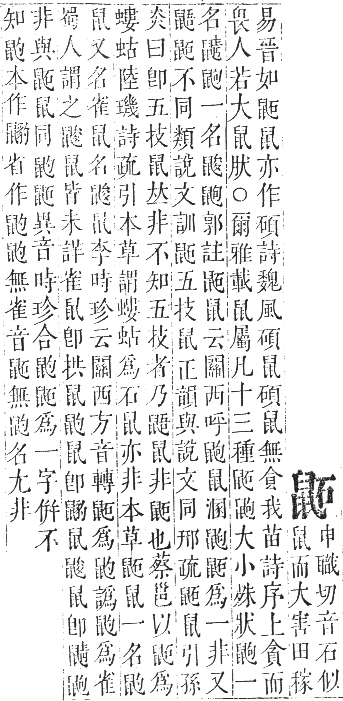 鼫 申職切音石似
鼠而大害田稼
易晉如鼫鼠亦作碩詩魏風碩鼠碩鼠無食我苗詩序上貪而
畏人若大鼠狀○爾雅載鼠屬凡十三種鼫鼩大小姝狀鼩一
名鼩一名鼩郭註鼫鼠云關西呼鼩鼠溷鼩鼫爲一非又
鼯鼫不同類說文訓鼫五技鼠正韻與說文同邢疏鼫鼠引孫
炎曰卽五技鼠𠀤非不知五技者乃鼯鼠非鼫也蔡邕以鼫爲
螻蛄陸璣詩疏引本草謂螻蛄爲石鼠亦非本草鼫鼠一名鼩
鼠又名雀鼠名鼠李時珍云關西方音轉鼫爲鼩譌鼩爲雀
蜀人謂之鼠皆未詳雀鼠卽拱鼠鼩鼠卽鼠鼠卽鼩
非與鼫鼠同鼩鼫異音時珍合鼩鼫爲一字併不
知鼩本作省作鼩鼩無雀音鼫無鼩名尤非